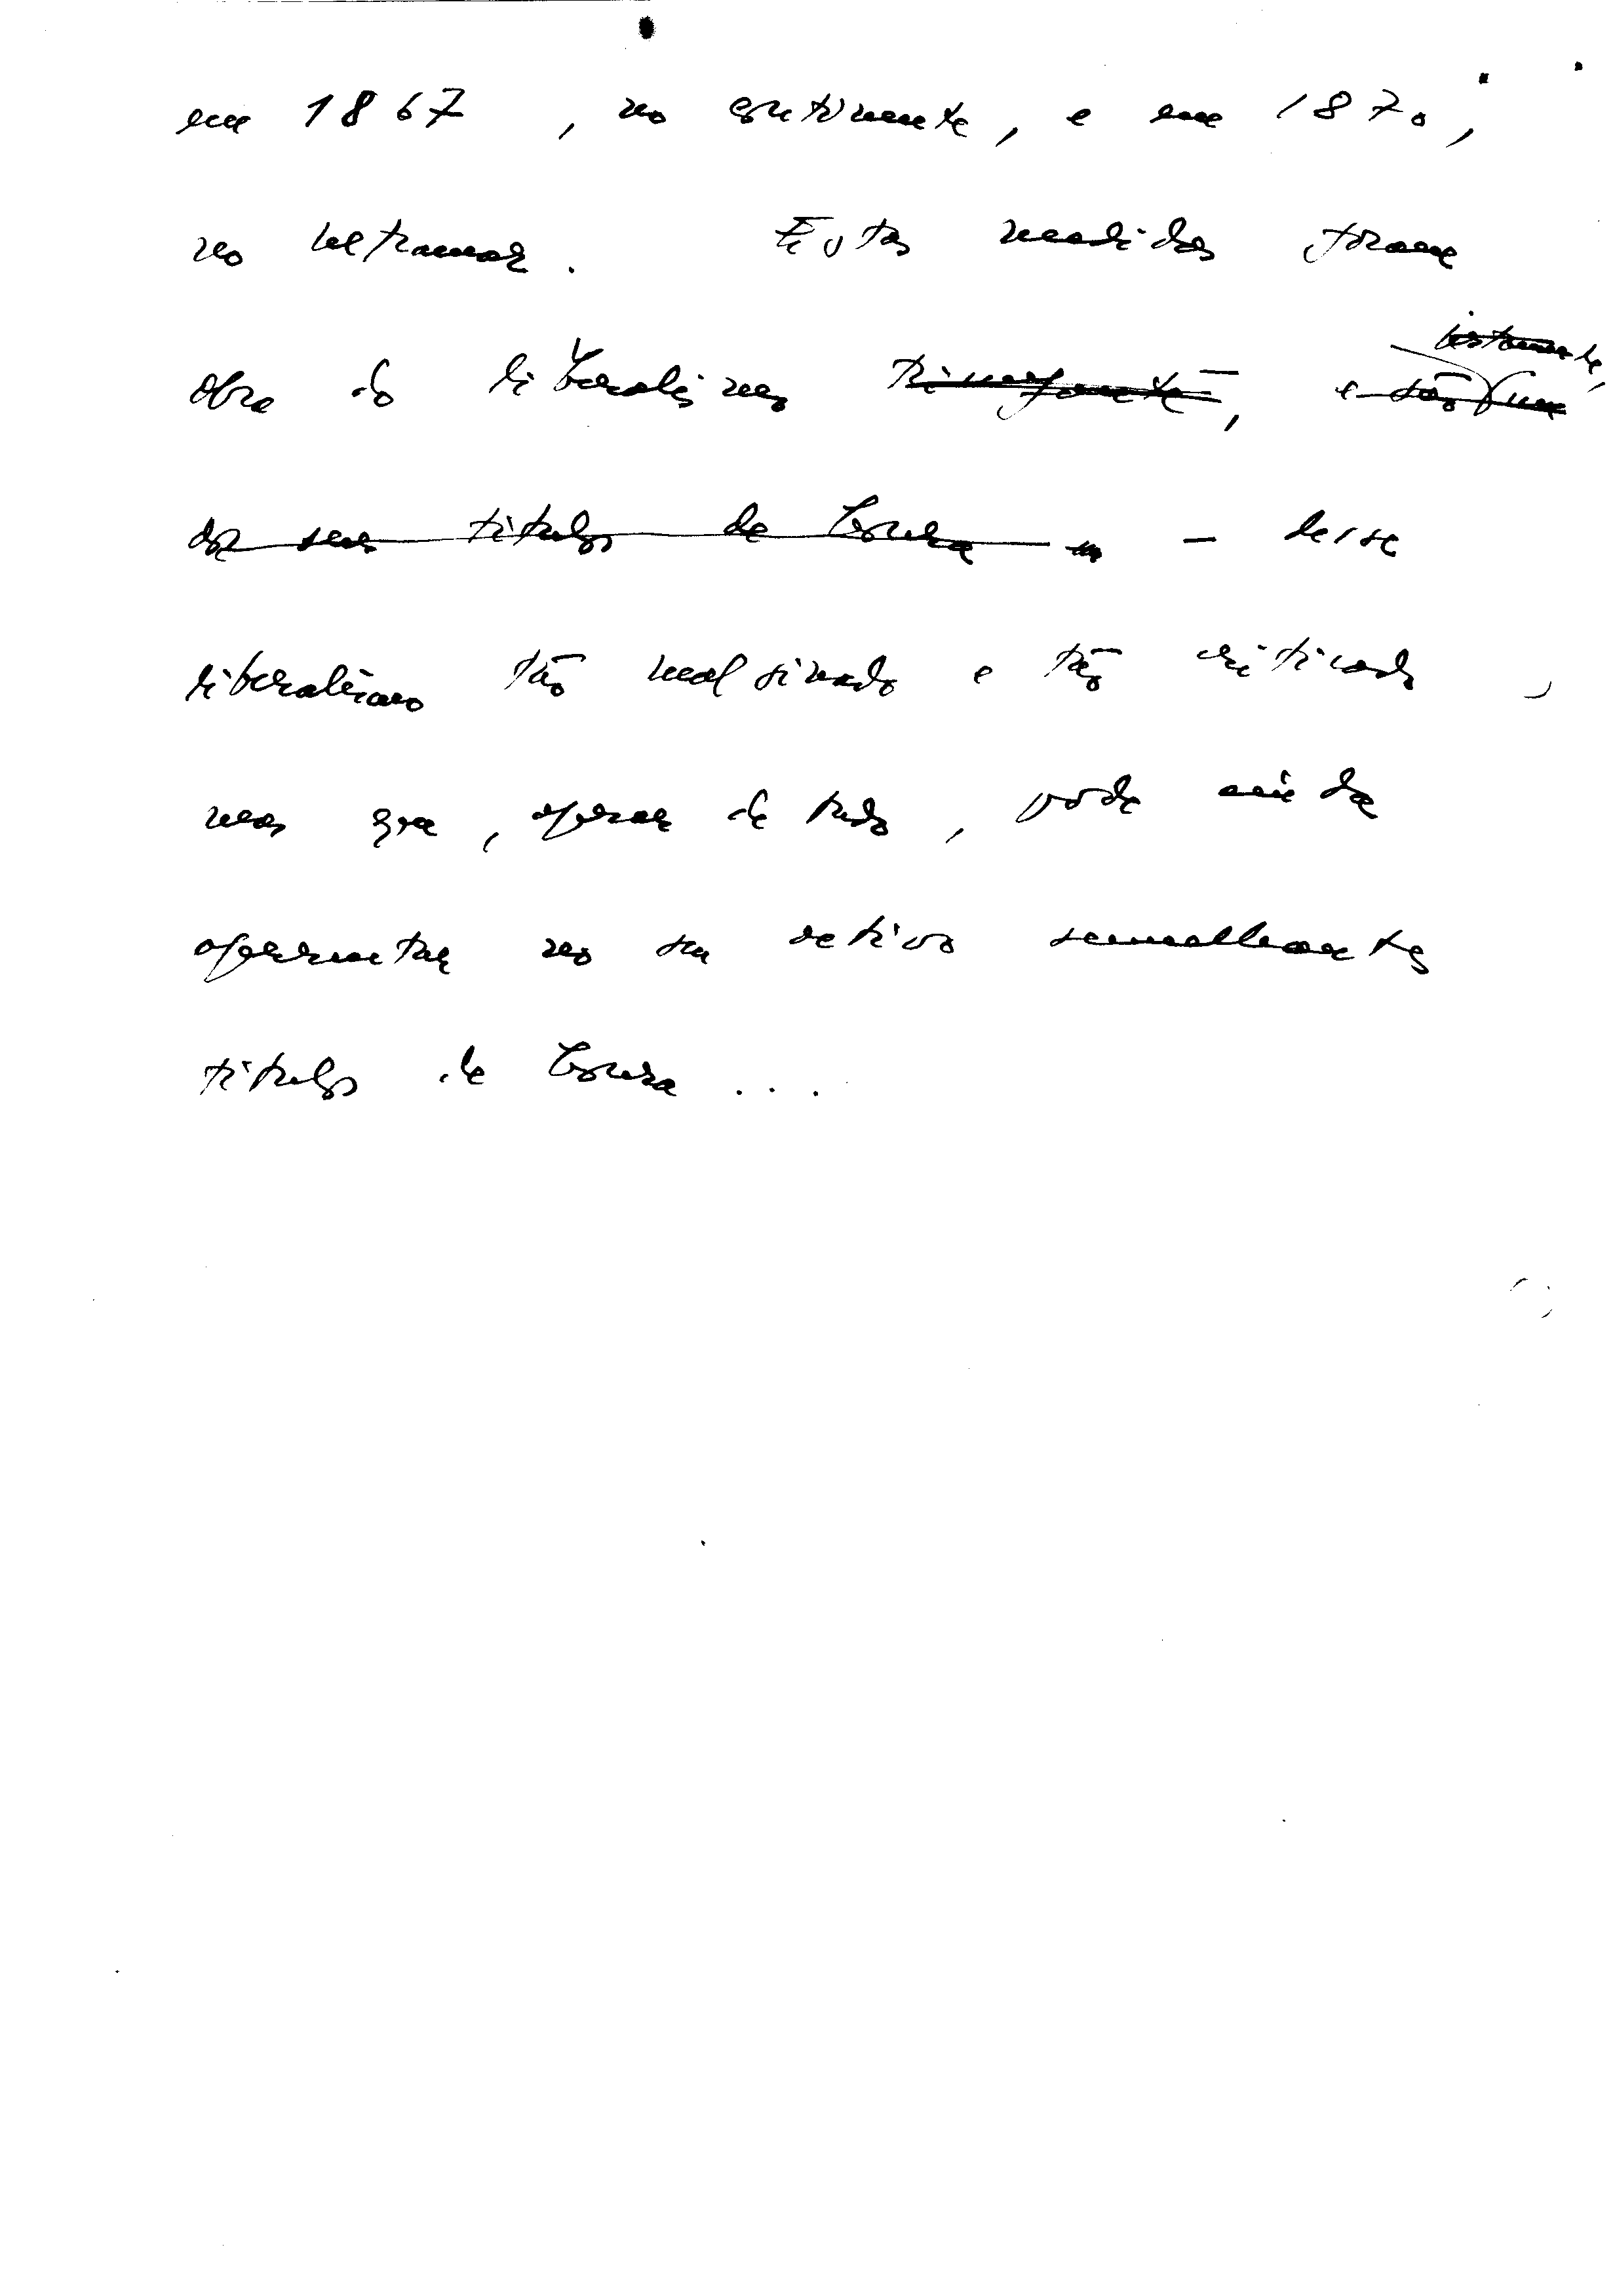 em 1867, no continente, e em 1870,
no ultramar. Estas medidas foram
obra do liberalismo triunfante, e são um
dos seus titulos de honra – desse
liberalismo tão malsinado e tão criticado,
mas que, apesar de tudo, pode ainda
apresentar no seu activo semelhantes
titulos de honra...